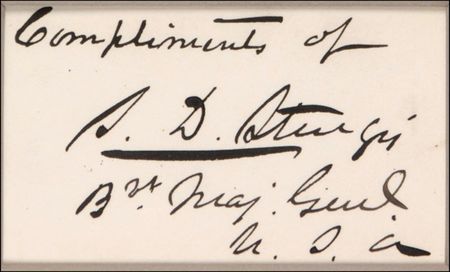 Compliments of
S. D. Sturgis
Bvt Maj. Genl.
U. S. A